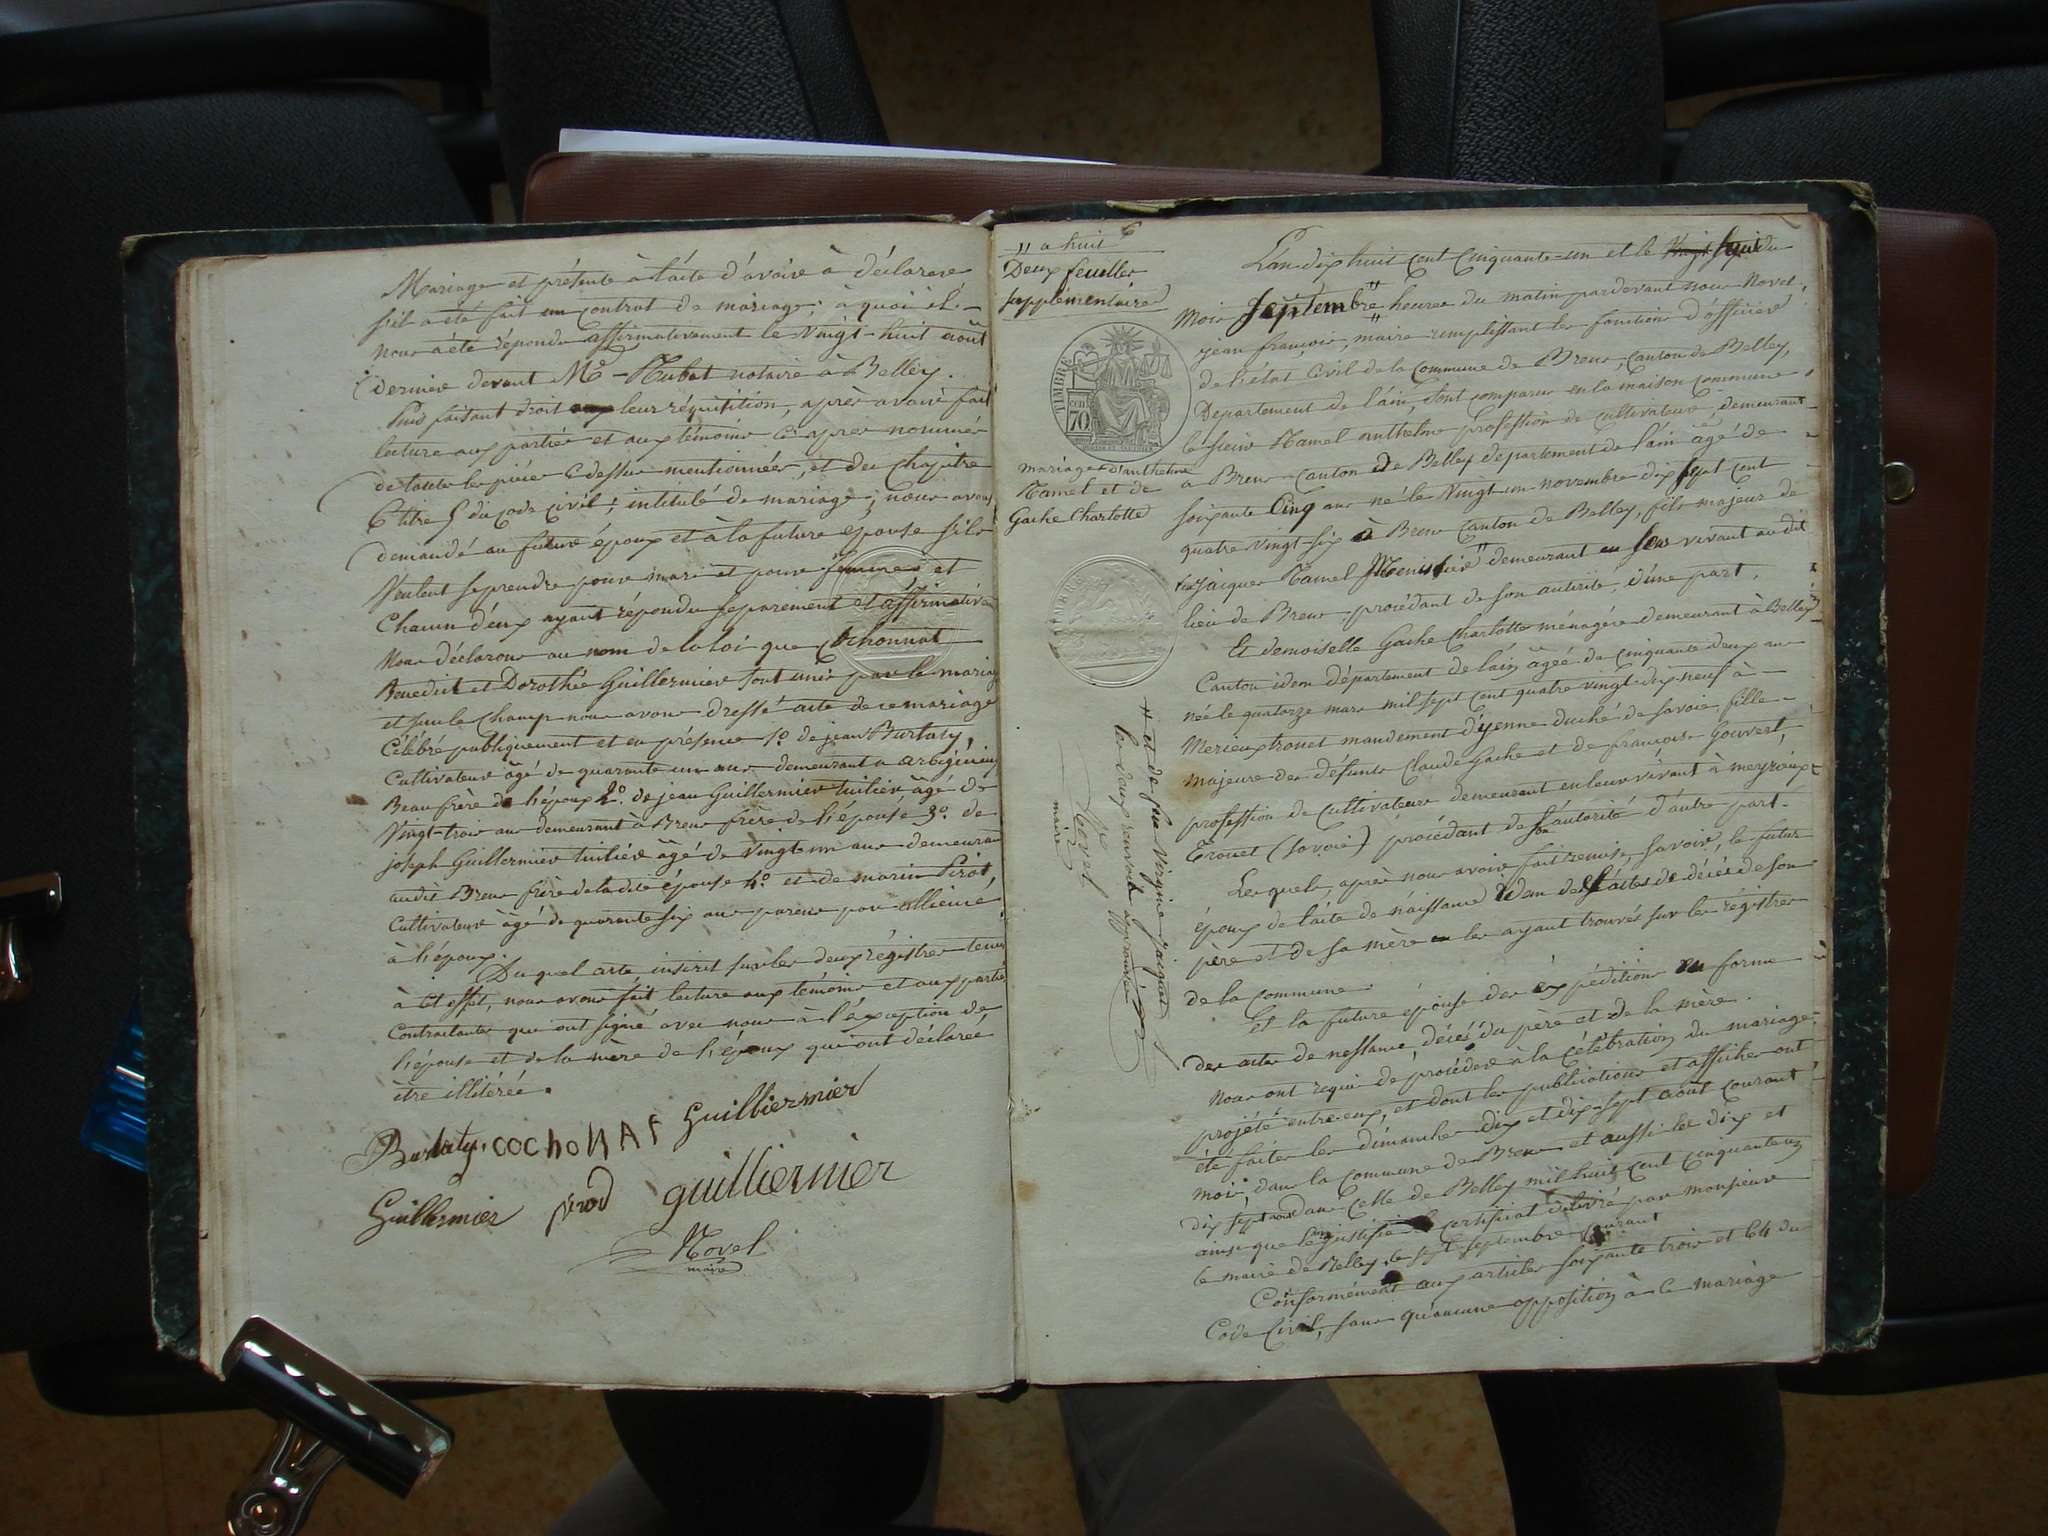 Mariage et présenté à l'acte d'avoir à déclarer
s'il a été fait un contrat de mariage; à quoi il
nous a été répondu affirmativement le Vingt-huit aoùt
dernier devant Me notaire à Belley.
Puis faisant droit leur réquisition, après avoir fait
lecture aux parties et aux témoins ci après nommés
de toutes les pièces cidessus mentionnées, et du chapitre
6 titre 5 du code civil; intitulé de mariage; nous avons
demandé au futur époux et à la future epouse s'ils
veulent se prendre pour mari et pour femme et
chacun d'eux ayant répondu séparement et affirmativem
Nous déclarons au nom de la loi que Cochonnat
Benedict et Dorothée Guillermier sont unis par le mariag
et sur le champ nous avons dressé acte de ce mariage
célébré publiquement et en présence 1º. de jean Burtaty,
cultivateur âgé de quarante un ans demeurant a arbignieu
Beaufrère de l'époux 2º. de jean Guillermier tuilier âgé de
Vingt-trois ans demeurant à Brens frère de l'épouse 3º. de
joseph Guillermier tuilier âgé de vingt un ans demeurant
audit Brens frère de la dite épouse 4º. et de marin Pirot,
cultivateur âgé de quarante six ans parens par allience
à l'époux.
Duquel acte inscrit sur les deux régistres tenus
à cet effet, nous avons fait lecture aux témoins et aux partie
contractantes qui ont signé avec nous à l'éxception de
l'épouse et de la mère de l'époux qui ont déclaré
être illitérée.
Burtaty. COCHONAT Guilliermier
Guillermier pirod guilliermier
Novel
maire
" a huit
6
Deux feuilles
supplémentaires
TIMBRE
70
mariage d'anthelme
Tamel et de
Gache Charlotte
" et de feue Virginie jaiquet
les deux renvois approuvés
Novel
maire
L'an dix huit cent cinquante-un et le Vingt huit du
mois Septembre " heures du matin pardevant nous Novel
jean françois, maire remplissant les fonctions d'officier
de l'état civil de la commune de Brens, canton de Belley,
Département de l'ain, sont comparus en la maison commune
le sieur Tamel anthelme profession de cultivateur, demeurant
a Brens canton de Belley département de l'ain âgé de
soixante cinq ans né le vingt un novembre dix sept cent
quatre vingt-six à Brens canton de Belley, fils majeur de
jaiques Tamel " demeurant en son vivant au dit
lieu de Brens procédant de son autorité, d'une part,
Et demoiselle Gache Charlotte ménagère demeurant à Belley
canton idem département de l'ain âgée de cinquante deux ans
née le quatorze mars mil sept cent quatre vingt dix neuf à
Merieux trouet mandement d'yenne duché de savoie fille
majeure des défunts Claude Gache et de françoise Gouvert,
profession de cultivateurs demeurant en leur vivant à meyrieux
Trouet (savoie) procédant de son autorité d'autre part.
Lesquels, après nous avoir fait remise, savoir, le futur
époux de l'acte de naissance des actes de décès de son
père et de sa mère les ayant trouvés sur les régistres
de la commune.
Et la future épouse des éxpéditions en forme
des actes de nessance, décés du père et de la mère.
Nous ont requis de procéder à la célébration du mariage
projété entre eux, et dont les publications et affiches ont
été faites les dimanches dix et dix sept aoùt courant
mois, dans la commune de Brens et aussi les dix et
dix sept dans celle de Belley mil huit cent cinquante un
ainsi que le justifie le certificat délivré par monsieur
le maire de Belley, le sept septembre courant
Conformément aux articles soixante trois et 64 du
code civil, sans qu'aucune opposition à ce mariage